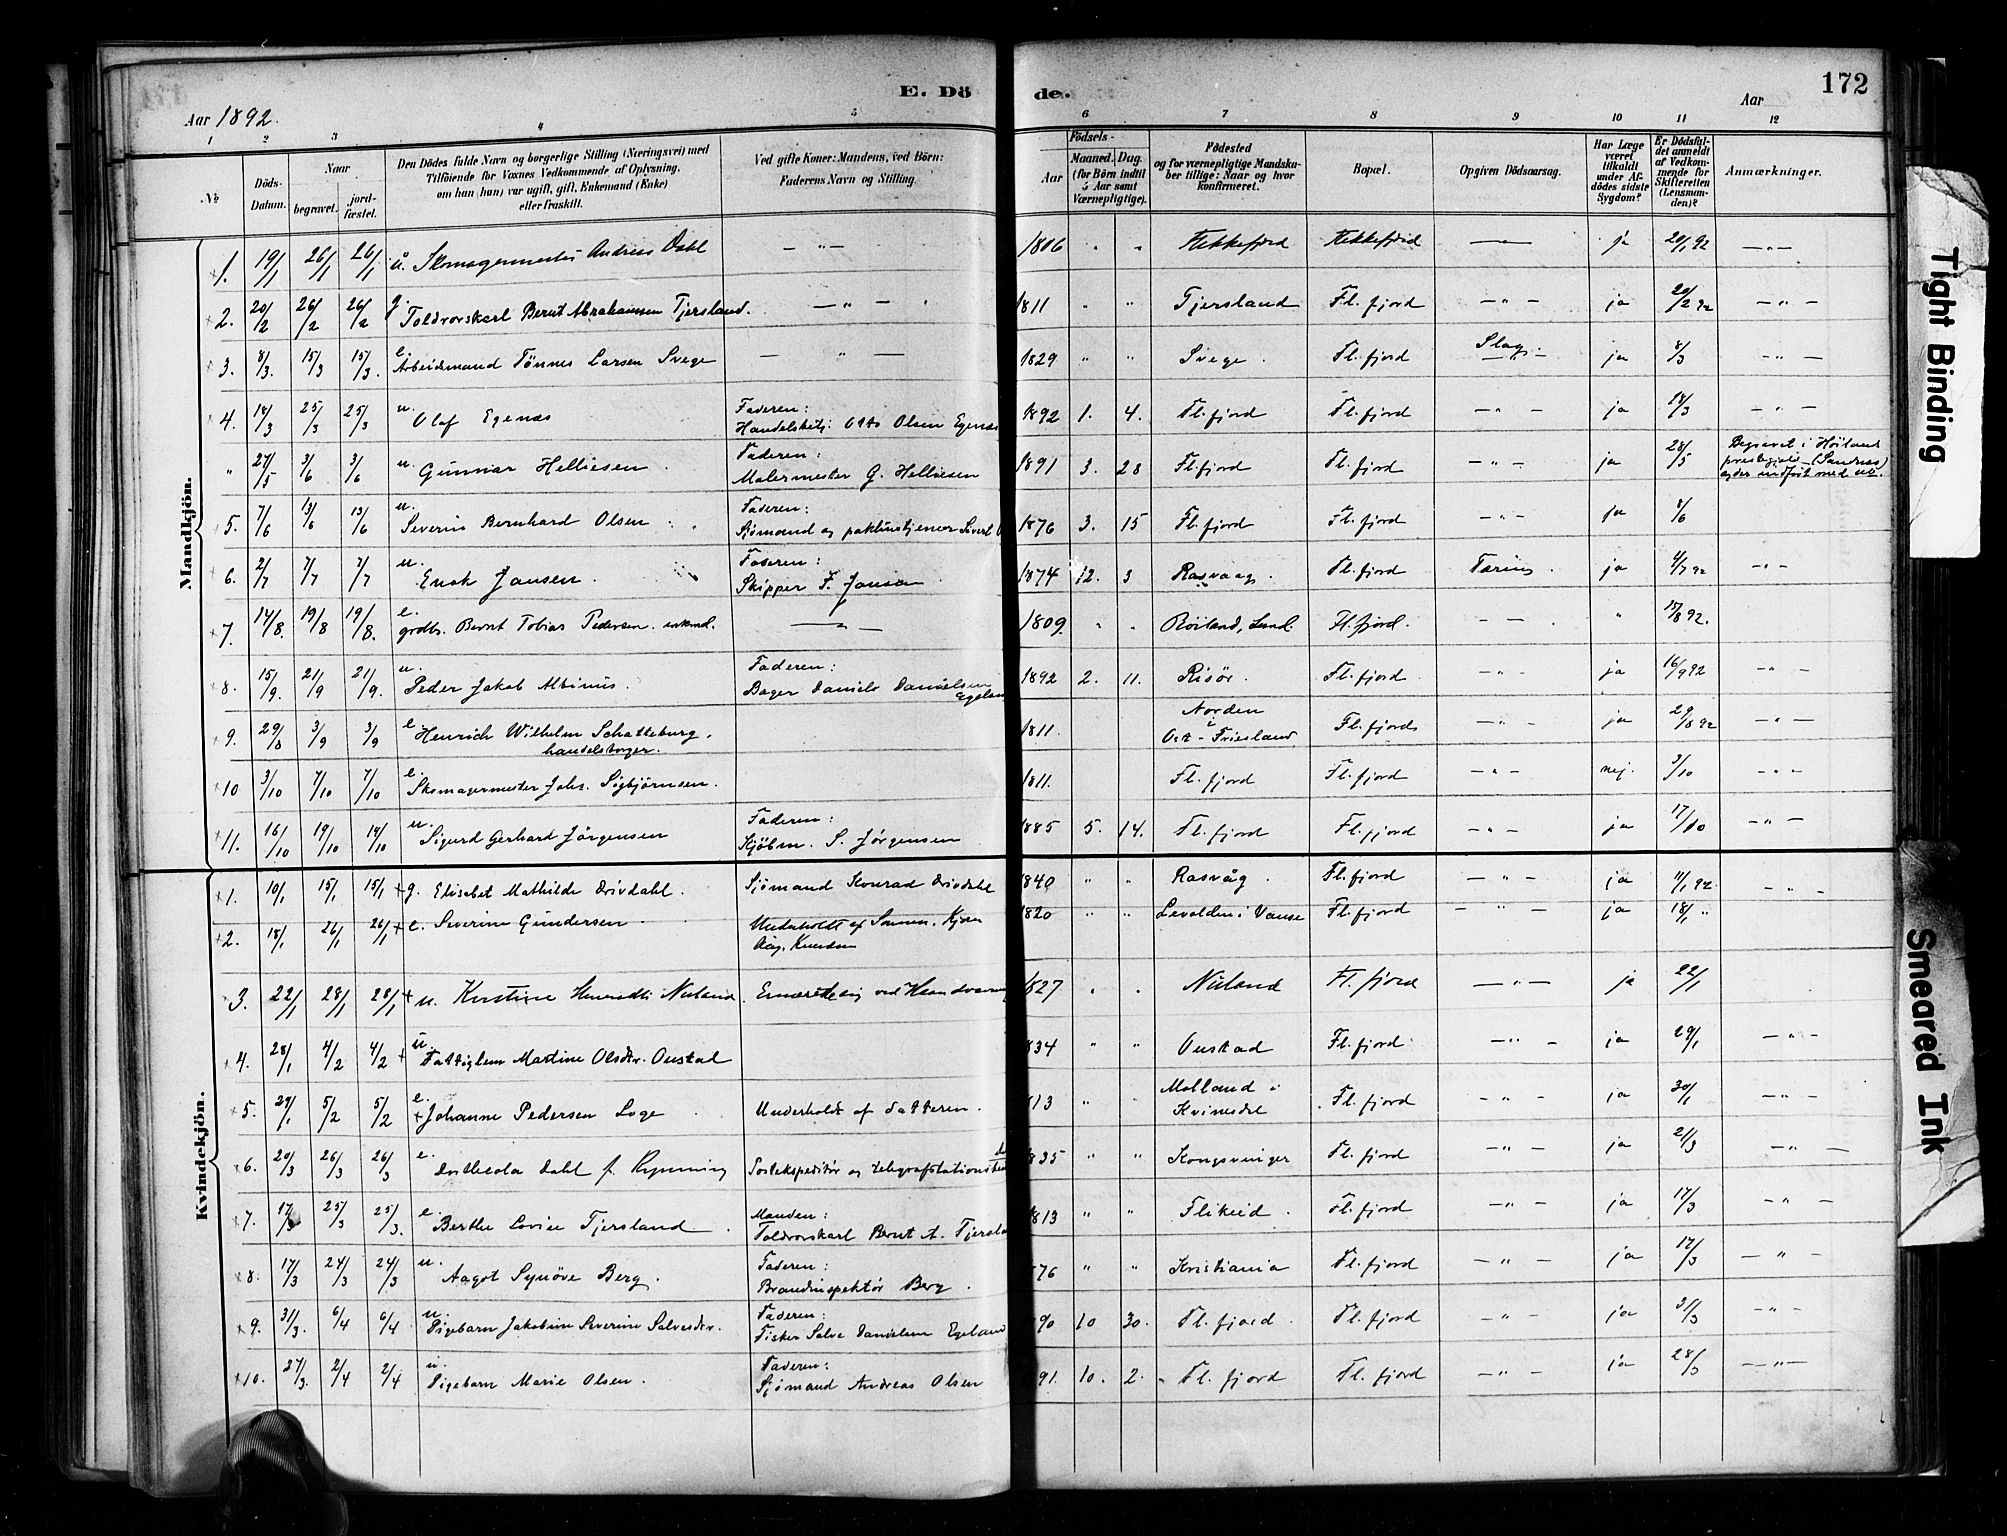 E. Dö de. 172
Aar 1892. Aar
1 2 3 4 5 6 7 8 9 10 11 12
№ Döds-Datum. Naar begravet. jordfæstet. Den Dödes fulde Navn og borgerlige Stilling (Næringsvei) med Tilföiende for Voxnes Vedkommende af Oplysning, om han (hun) var ugift, gift, Enkemand (Enke) eller fraskilt. Ved gifte Koner: Mandens, ved Börn: Faderens Navn og Stilling. Aar Födsels- Maaned. Dag. (for Börn indtil 5 Aar samt Værnepligtige). Födested og for værnepligtige Mandskaber tillige: Naar og hvor konfirmeret. Bopæl. Opgiven Dödsaarsag. Har Læge været tilkaldt under Afdödes sidste Sygdom? Er Dödsfaldet anmeldt af Vedkommende for Skifteretten (Lensmanden)? Anmærkninger.
Mandkjön.
1. 19/1 26/1 26/1 u. Skomagermester Andreas Dahl — " — 1806 " " Flekkefjord Flekkefjord — ja 20/1 92 — " —
2. 20/2 26/2 26/2 g. Toldrorskarl Bernt Abrahamsen Tjersland. — " — 1811 " " Tjersland Fl.fjord — " — ja 20/2 92 — " —
3. 8/3 15/3 15/3. e. Arbeidsmand Tönnes Larsen Svege — " — 1829 " " Svege. Fl.fjord Slag. ja 8/3 — " —
4. 18/3 25/3 25/3 u. Olaf Egenæs Faderen: Handelsbetj: Otto Olsen Egenæs 1892 1. 4. Fl.fjord Fl.fjord — " — ja 18/3 — " —
" 27/5 3/6 3/6 u Gunnar Helliesen. Faderen: Malermester G. Helliesen 1891 3. 28 Fl.fjord Fl.fjord — " — ja 28/5 Begravet i Höiland prestegjeld (Sandnes)
5. 7/6 13/6 13/6 u. Severin Bernhard Olsen Faderen: Sjömand og pakhustjener Sivert 1876 3. 15 Fl.fjord Fl.fjord — " — ja 8/6
6. 2/7 7/7 7/7 u. Enok Jansen. Faderen: Skipper F. Jansen 1874 12. 3 Rasvaag. Fl.fjord Tæring ja 4/7 92 — " —
7. 14/8. 19/8 19/8. e. grdbr. Bernt Tobias Pedersen. enkmd. — " — 1809. " " Röiland, Lund. Fl.fjord. — " — " 15/8 92.
8. 15/9. 21/9 21/9. u. Peder Jakob Albinus. Faderen: Bager Daniels Danielsen Egeland 1892 2. 11. Risör. Fl.fjord — " — ja 16/9 92 — " —
9. 29/8 3/9 3/9 e. Henrich Wilhelm Schatteburg, handelsborger. 1811. Norden i Ost-Friesland Fl.fjord — " — ja 29/8 92 — " —
10 3/10 7/10 7/10 e. Skomagermester Johs. Sigbjörnsen. 1811. Fl.fjord Fl.fjord — " — nej. 3/10 — " —
11. 16/10 19/10 19/10 u. Sigurd Gerhard Jörgensen Faderen: Kjöbm. S. Jörgensen 1885 5. 14. Fl.fjord Fl.fjord — " — ja 17/10 — " —
Kvindekjön.
1. 10/1 15/1 15/1 g. Elisabet Mathilde Drivdahl. Sjömand Konrad Drivdahl 1840 " " Rasvåg. Fl.fjord — " — ja 11/1 92 — " —
2. 18/1 26/1 26/1 e. Severine Gundersen. Underholdt af Sönnen, 1820 " " i Vanse Fl.fjord — " — ja 18/1 "
3. 22/1 28/1 28/1 u. Kirstine Nuland. Ernærede sig ved 1827 " " Nuland Fl.fjord — " — ja 22/1
4. 28/1 4/2 4/2 u. Fattiglem Martine Olsdtr. Oustad 834 " " Oustad Fl.fjord — " — ja 29/1 — " —
5. 29/1 5/2 5/2 e. Johanne Pedersen Loge Underholdt af datteren. 813 " " Molland i Kvinesdal Fl.fjord — " — ja 30/1 — " —
6. 20/3 26/3 26/3 e. Dahl f. Rynning Postekspeditör og telegrafstations 835 " " Kongsvinger Fl.fjord — " — ja 21/3 — " —
7. 17/3 25/3 25/3. e. Berthe Lovise Tjersland Manden: Toldrorskarl Bernt A. Tjersla 1813 " " Flikeid. Fl.fjord — " — ja 17/3 — " —
8. 17/3 24/3 24/3 u. Aagot Synöve Berg. Faderen: Brandinspektör Berg. 876 " " Kristiania Fl.fjord — " — ja 17/3 — " —
9. 31/3. 6/4 6/4 u. Pigebarn Jakobine Severine Salvesdtr. Faderen: Fisker Salve Danielsen Egeland 890 10 30. Fl.fjord. Fl.fjord — " — ja 31/3 — " —
10. 27/3. 2/4 2/4 u. Pigebarn Marie Olsen. Faderen: Sjömand Andreas Olsen 891. 10. 2. Fl.fjord Fl.fjord — " — ja 28/3 — " —
Tight Binding
Smeared Ink